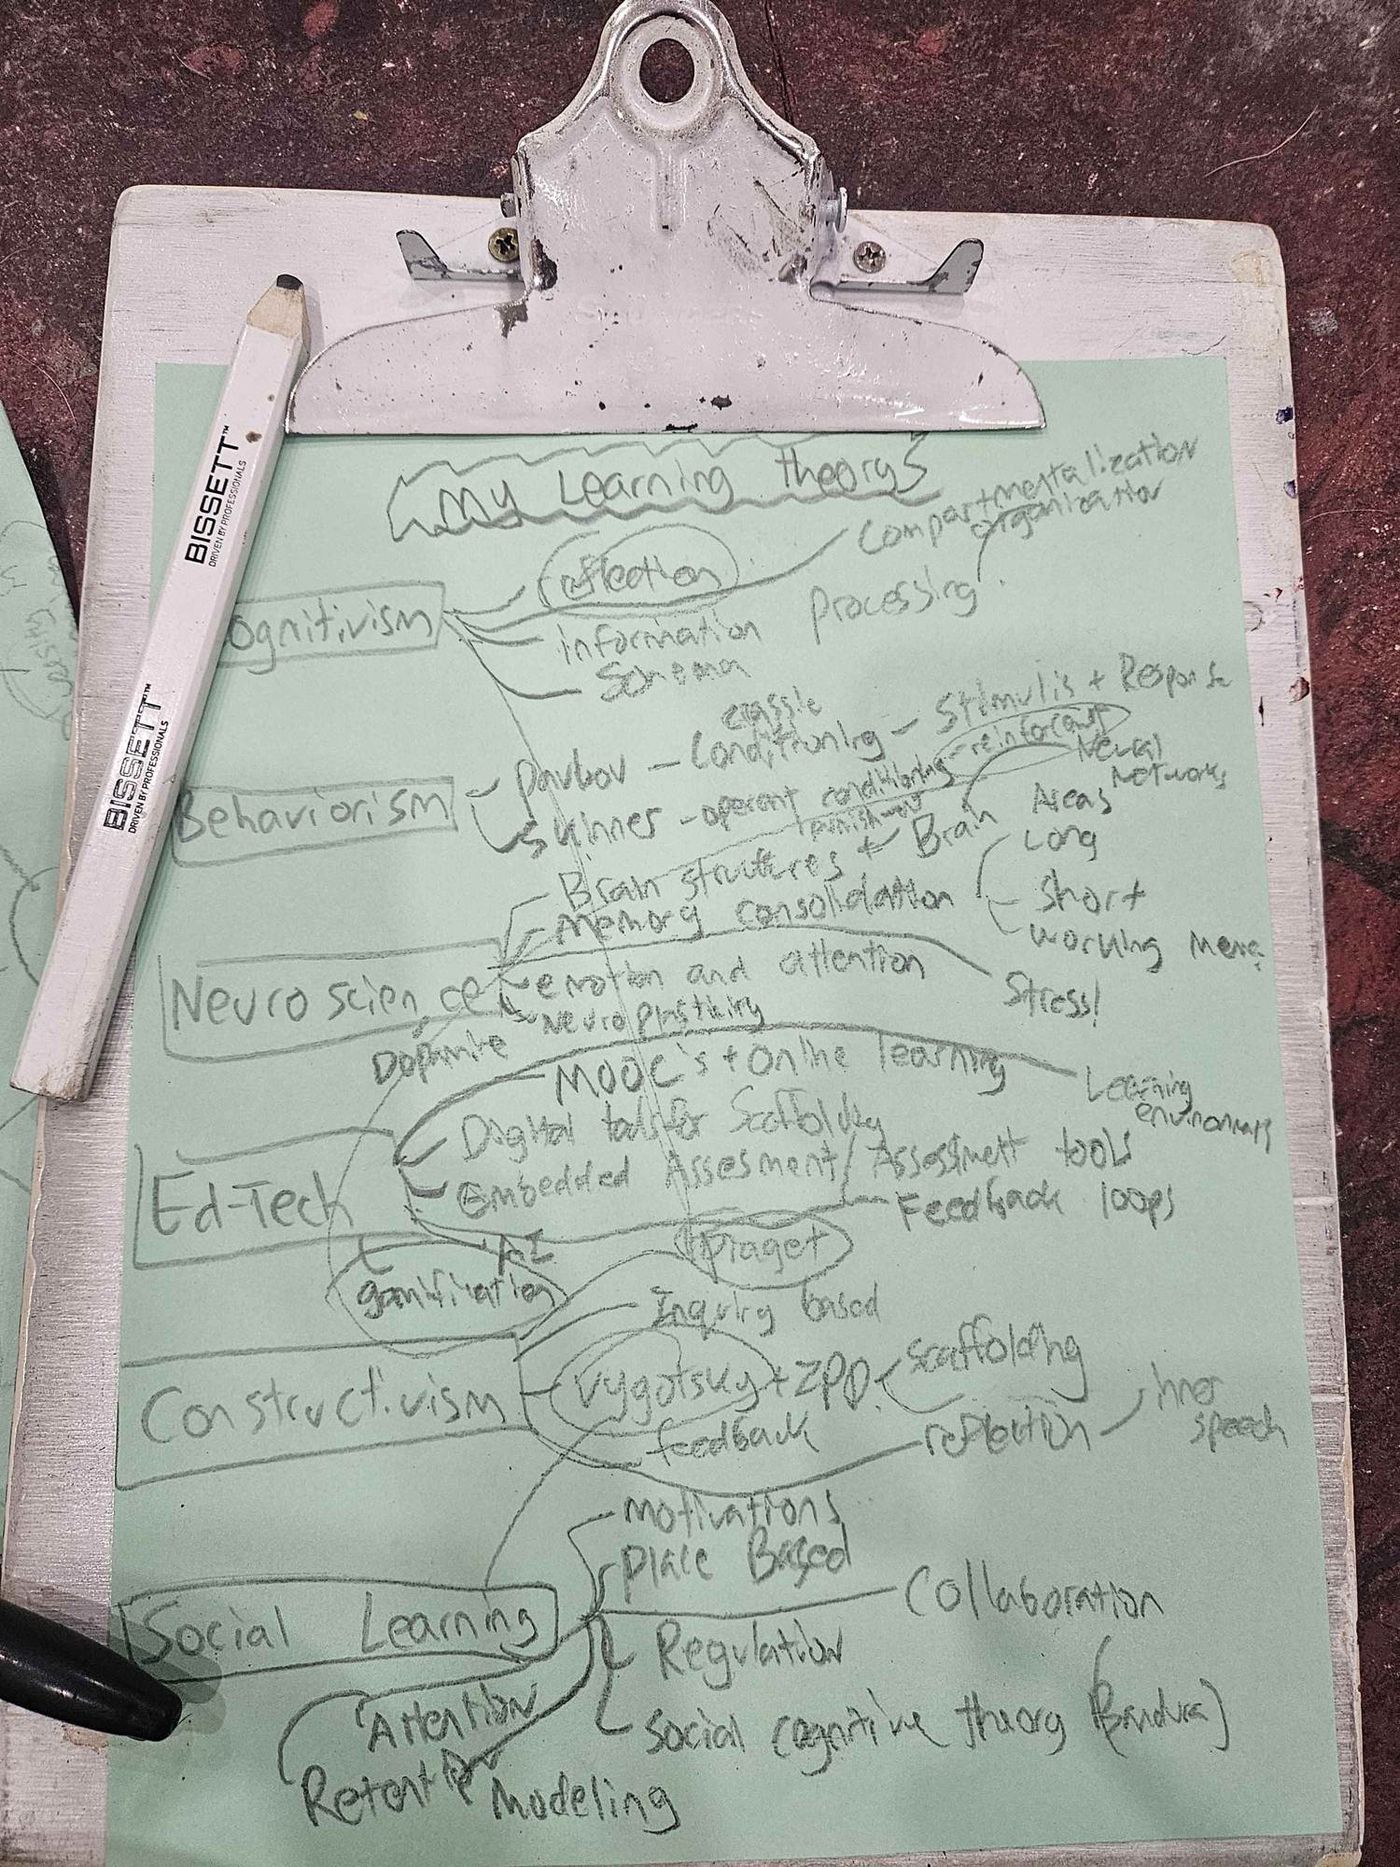 My Learning theorys
reflection
Compartmentalization
organization
ognitivism
information processing
Schema
classic
Pavlov - Conditioning - Stimulis + Response
Behaviorism
Skinner - operent conditioning - reinforcent
Punishment
Neural
Networks
Brain structures + Brain Areas
Memory consolidation
Long
Short
working mem
Neuroscience
emotion and attention
Stress!
Neuroplasticity
Dopamine
MOOC's + Online learning
Learning
environments
Digital tools for Scaffolding
Embedded Assesment/Assessment tools
Ed-Tech
Feedback loops
AI
gamification
Piaget
Inquiry based
Constructivism
Vygotsky + ZPD
Scaffolding
feedback
reflection
inner
speech
motivations
Place Based
Social Learning
Collaboration
Regulation
Attention
Social cognitive theory (Bandura]
Retention
Modeling
BISSETT™
DRIVEN BY PROFESSIONALS
BISSETT™
DRIVEN BY PROFESSIONALS